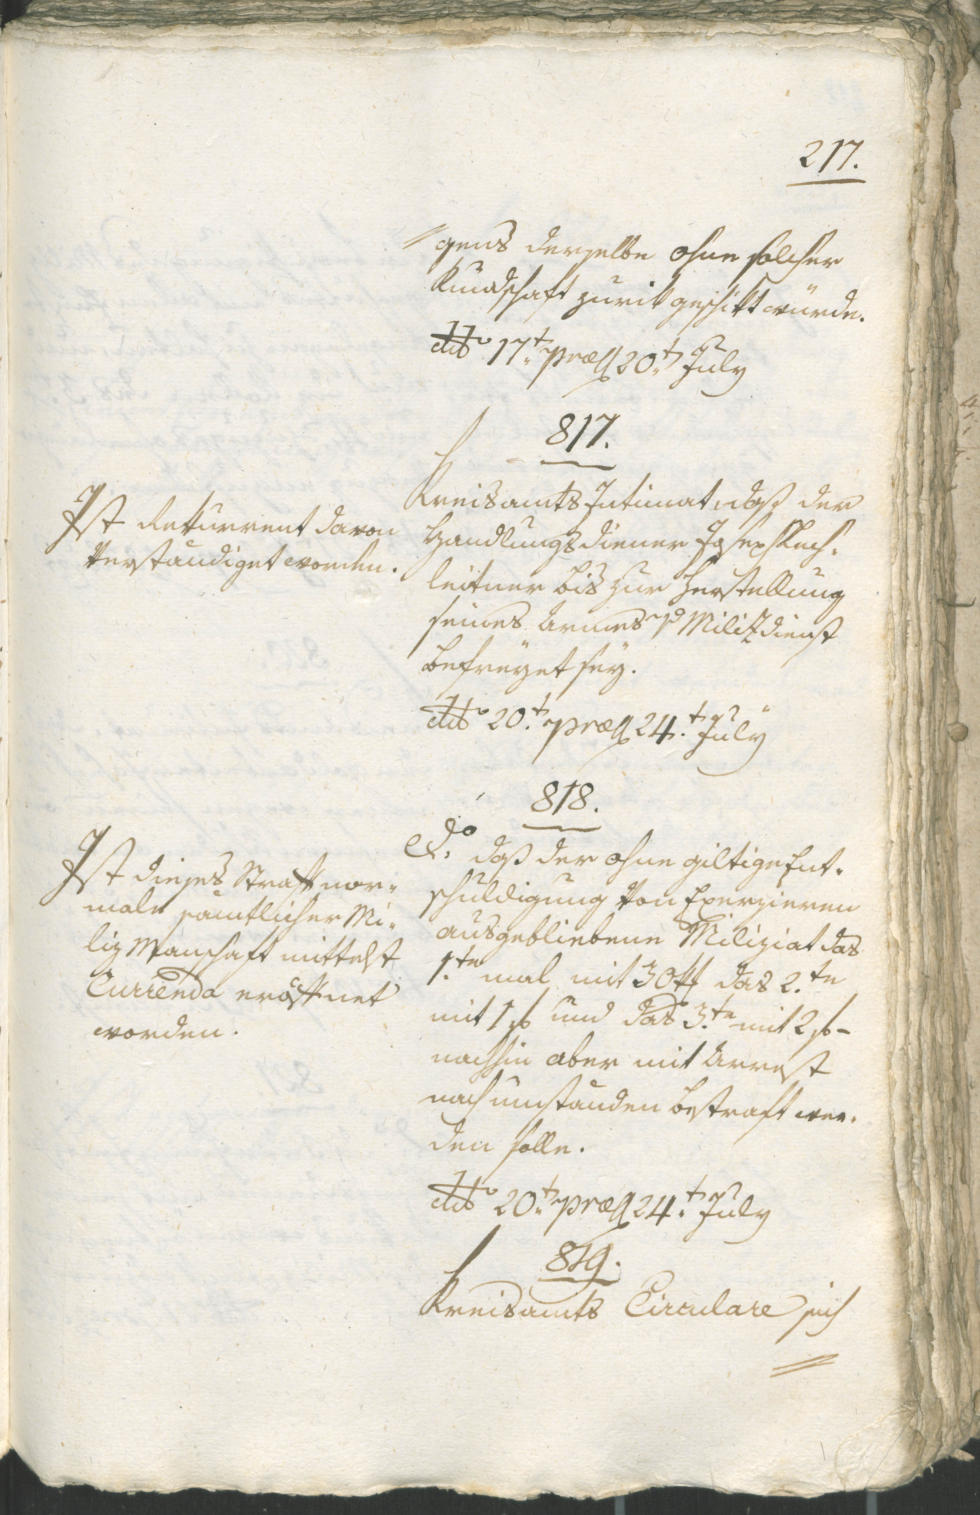 217.
gens derselbe ohne solcher
Kundschaft zurik geschikt würde.
ddo 17t. præs 20t. July
817.
Kreisamts Intimat, daß der
Handlungsdiener Joseph
leitner bis zur Herstellung
seines Armes Milizdienst
befreyet sey.
ddo 20t. præs 24.t July
Ist Rekurrent davon
verständiget worden.
818.
do. daß der ohne giltige Ent-
schuldigung von Exerzieren
ausgebliebene Miliziat das
1.te mal mit 30 das 2.te
mit 1 f und das 3.te mit 2 f-
nachhin aber mit Arrest
nach umständen bestraft wer-
den solle.
ddo 20t. præs 24.t July
Ist dieses Straff nor-
male sämtlicher Mi-
liz Manschaft mittelst
Currenda eröffnet
worden.
819.
Kreisamts Circulare sich